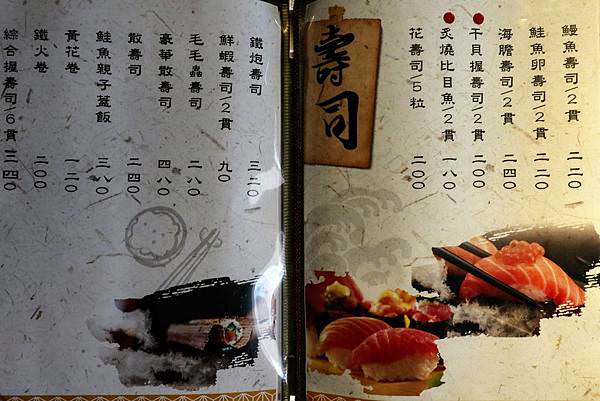 壽司
鰻魚壽司/2貫 二二０
鮭魚卵壽司/2貫 二二０
海膽壽司/2貫 二四０
干貝握壽司/2貫 二００
炙燒比目魚/2貫 一八０
花壽司/5粒 二００
鐵炮壽司 三二０
鮮蝦壽司/2貫 九０
毛毛蟲壽司 二八０
豪華散壽司 四八０
散壽司 二四０
鮭魚親子蓋飯 三八０
黃花卷 一二０
鐵火卷 二００
綜合握壽司/6貫 三四０